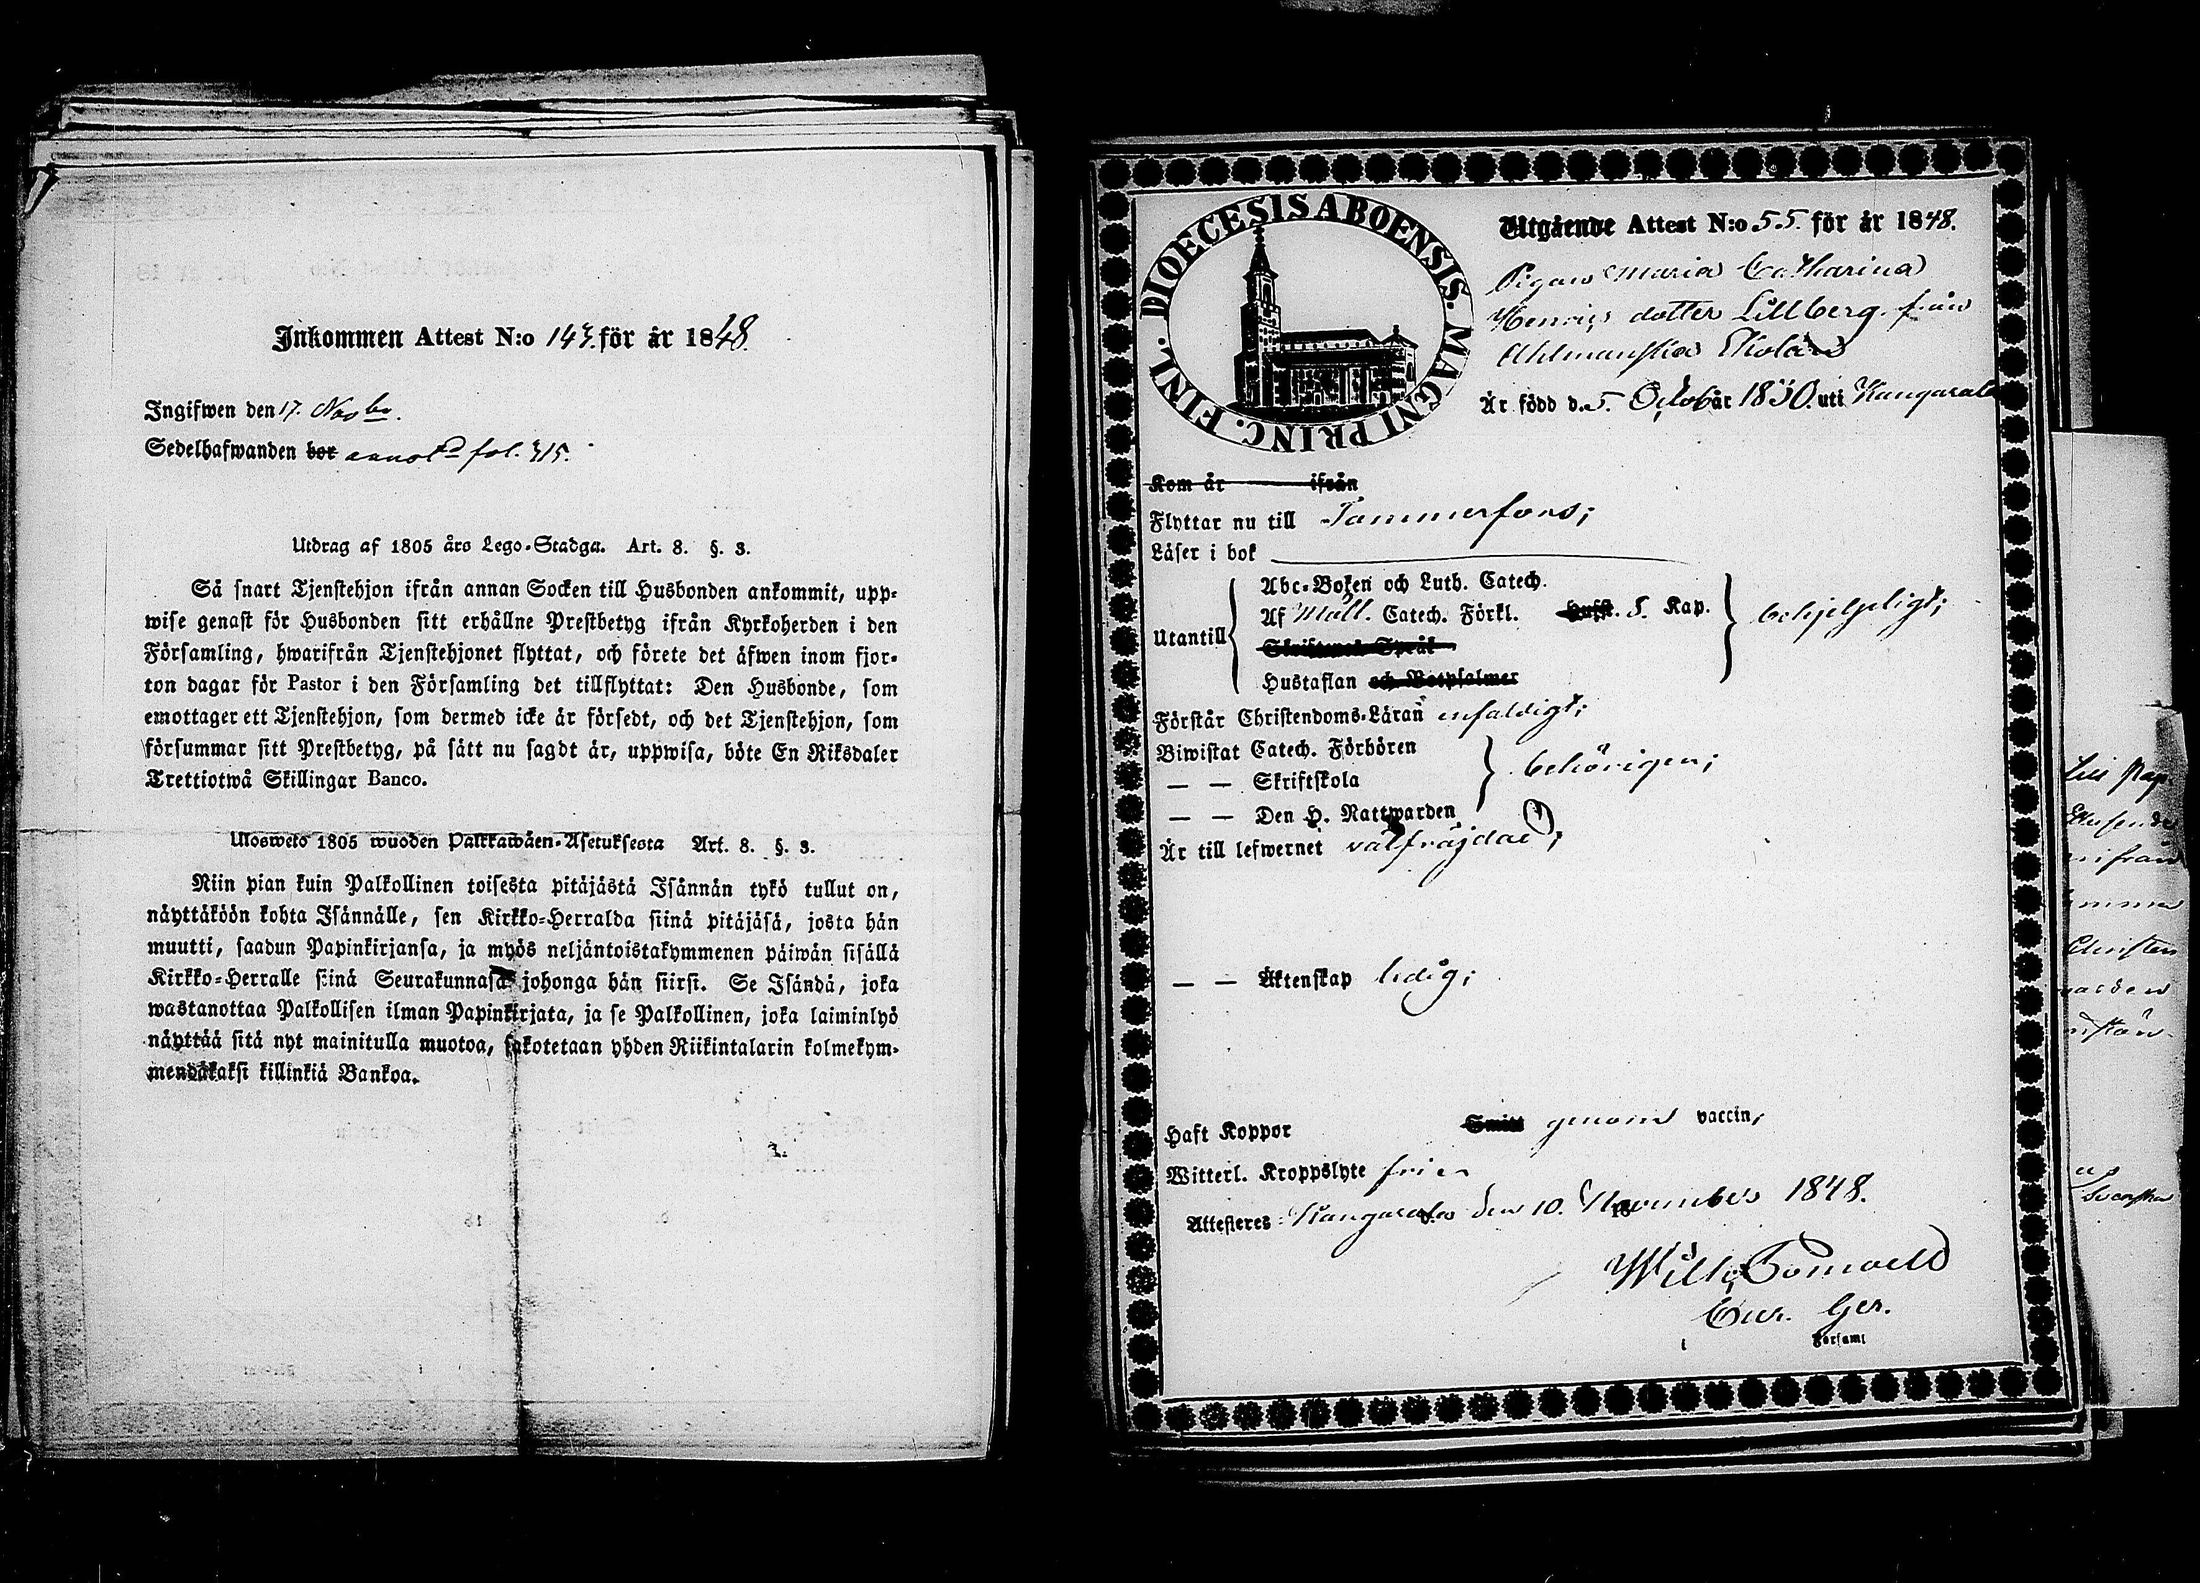 Inkommen Attest N:o 143. för år 1848.
Ingifwen den 17. Novbr.
Sedelhafwanden bor annotd fol. 315.
Utdrag af 1805 års Lego-Stadga. Art. 8. §. 3.
Så snart Tjenstehjon ifrån annan Socken till Husbonden ankommit, upp-
wise genast för Husbonden sitt erhållne Prestbetyg ifrån Kyrkoherden i den
Församling, hwarifrån Tjenstehjonet flyttat, och förete det äfwen inom fjor-
ton dagar för Pastor i den Församling det tillflyttat: Den Husbonde, som
emottager ett Tjenstehjon, som dermed icke är försedt, och det Tjenstehjon, som
försummar sitt Prestbetyg, på sätt nu sagdt är, uppwisa, böte En Riksdaler
Trettiotwå Skillingar Banco.
Ulosweto 1805 wuoden Palkkawäen-Asetuksesta Art. 8. §. 3.
Niin pian kuin Palkollinen toisesta pitäjästä Isännän tykö tullut on,
näyttäköön kohta Isännälle, sen Kirkko-Herralda siinä pitäjäsä, josta hän
muutti, saadun Papinkirjansa, ja myös neljäntoistakymmenen päiwän sisällä
Kirkko-Herralle siinä Seurakunnasa johonga hän siirsi. Se Isändä, joka
wastanottaa Palkollisen ilman Papinkirjata, ja se Palkollinen, joka laiminlyö
näyttää sitä nyt mainitulla muotoa, sakotetaan yhden Riikintalarin kolmekym-
mendäkaksi killinkiä Bankoa.
DIOECESIS ABOENSIS. MAGNI PRINC. FINL.
Utgående Attest N:o 55. för år 1848.
Pigan Maria Catharina
Henrics dotter Lillberg från
Ahlmanska Skolan
Är född d. 5. Octob år 1830. uti Kangasala
Kom år ifrån
Flyttar nu till Tammerfors;
Läser i bok
Utantill
Abc-Boken och Luth. Catech.
Af Mall. Catech. Förkl. Husst. 5. Kap.
Skriftenes Språk
Hustaflan och Botpsalmer
behjelpligt;
Förstår Christendoms-Läran enfaldigt;
Biwistat Catech. Förhören
— — Skriftskola
— — Den H. Nattwarden
behörigen;
Är till lefwernet välfräjdad;
— — Äktenskap ledig;
Haft Koppor Smitt genom vaccin;
Witterl. Kroppslyte fri
Attesteres Kangasala den 10. November 1848.
Cur. Ger.
i Församl